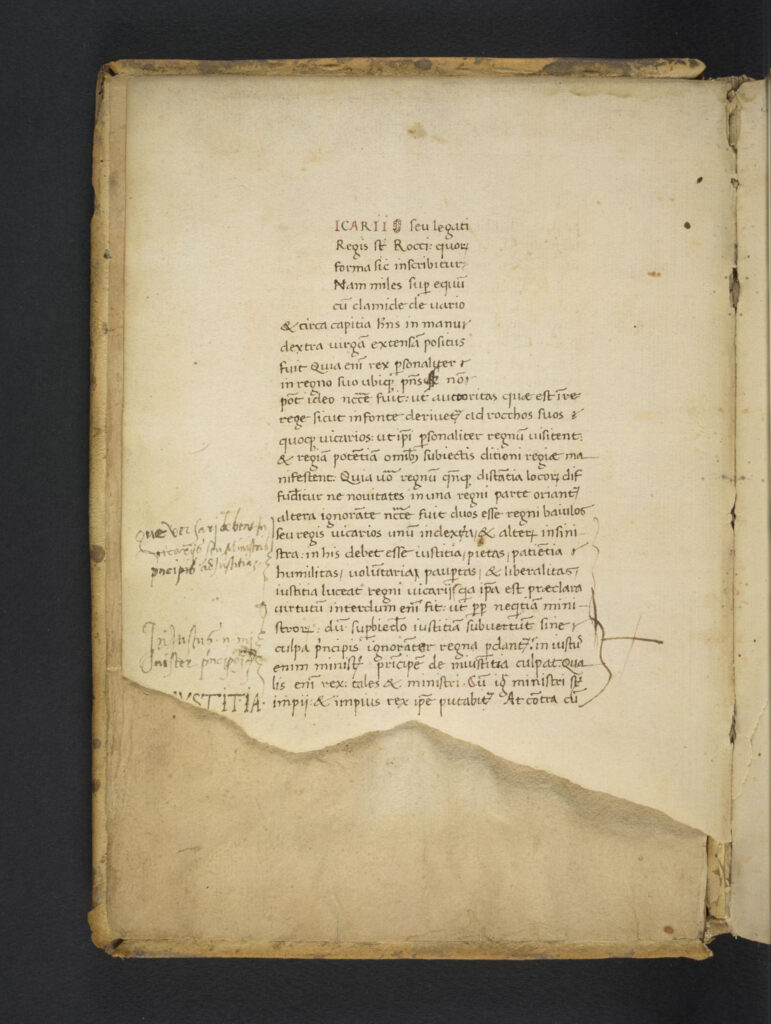 ICARII seu legati
Regis st̄ Rocci: quoꝝ
forma sic inscribitur
Nam miles sup̄ equū
cū clamide de vario
& circa capitia hn̄s in manu
dextra virgā extensā positus
fuit Quia eni rex psonaliter &
in regno suo ubiqꝫ pn̄s nō
pōt ideo nccē fuit: ut auctoritas quæ est ī re
rege sicut in fonte derivetꝛ ad rocchos suos &
quoqꝫ vicarios: ut ipi psonaliter regnū visitent
& regiā potētiā omibꝫ subiectis ditioni regiæ ma
nifestent. Quia uō regnū distātia locoꝝ dif
fūditur ne novitates in una regni parte oriantꝛ
altera ignorāte nccē fuit duos esse regni baiulos
seu regis vicarios unū in dextra, & alterꝫ in sini-
stra: in his debet esse iustitia, pietas, patiētia &
humilitas, voluntaria paup̄tas, & liberalitas,
iustitia luceat regni vicarijs qa ipa est præclara
virtutū interdum enī fit: ut pp̄ neqtiā mini-
stroꝝ: dū iustitiā subvertūt sine &
culpa pncipis ignorāter regna pdantꝛ: in iustꝰ
enim ministꝛ prīcipē de iniustitia culpat. Qua
lis enī rex: tales & ministri. Cū ministri st̄
impij: & impius rex ipē putabitꝛ At cōtra cū
Quæ versari debent in
vicarijs seu ministris
pncipis ad iustitia
Iniustus mi
nister pncipē
IVSTITIA.